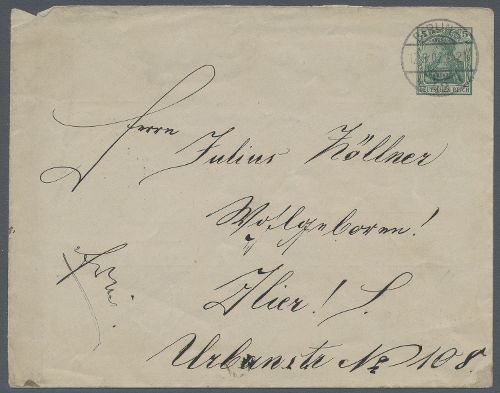 BERLIN
DEUTSCHES REICH
Herrn
Julius Köllner
Wohlgeboren!
Frei.
Hier! S.
Urbanstr No 108.